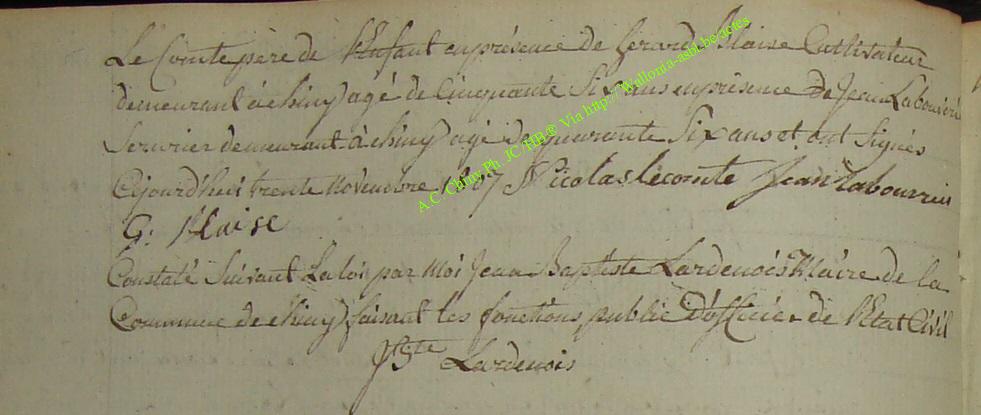 Le Comte père de l'Enfant en présence de Gérard Blaise Cultivateur
demeurant à chiny agé de Cinquante Six ans en présence De Jean Labouverie
Serurier demeurant à chiny agé de quarante Six ans et ont Signés
Cejourd'huit trente Novembre 1807 Nicolas lecomte Jean Labouverie
G: Blaise
Constaté Suivant La loi par Moi Jean Baptiste Lardenois Maire de la
Commune de chiny faisant les fonctions public D'officier de l'Etat Civil
JBte Lardenois
A.C. Chiny Ph JC/HB® Via http://Wallonia-asbl.be/actes